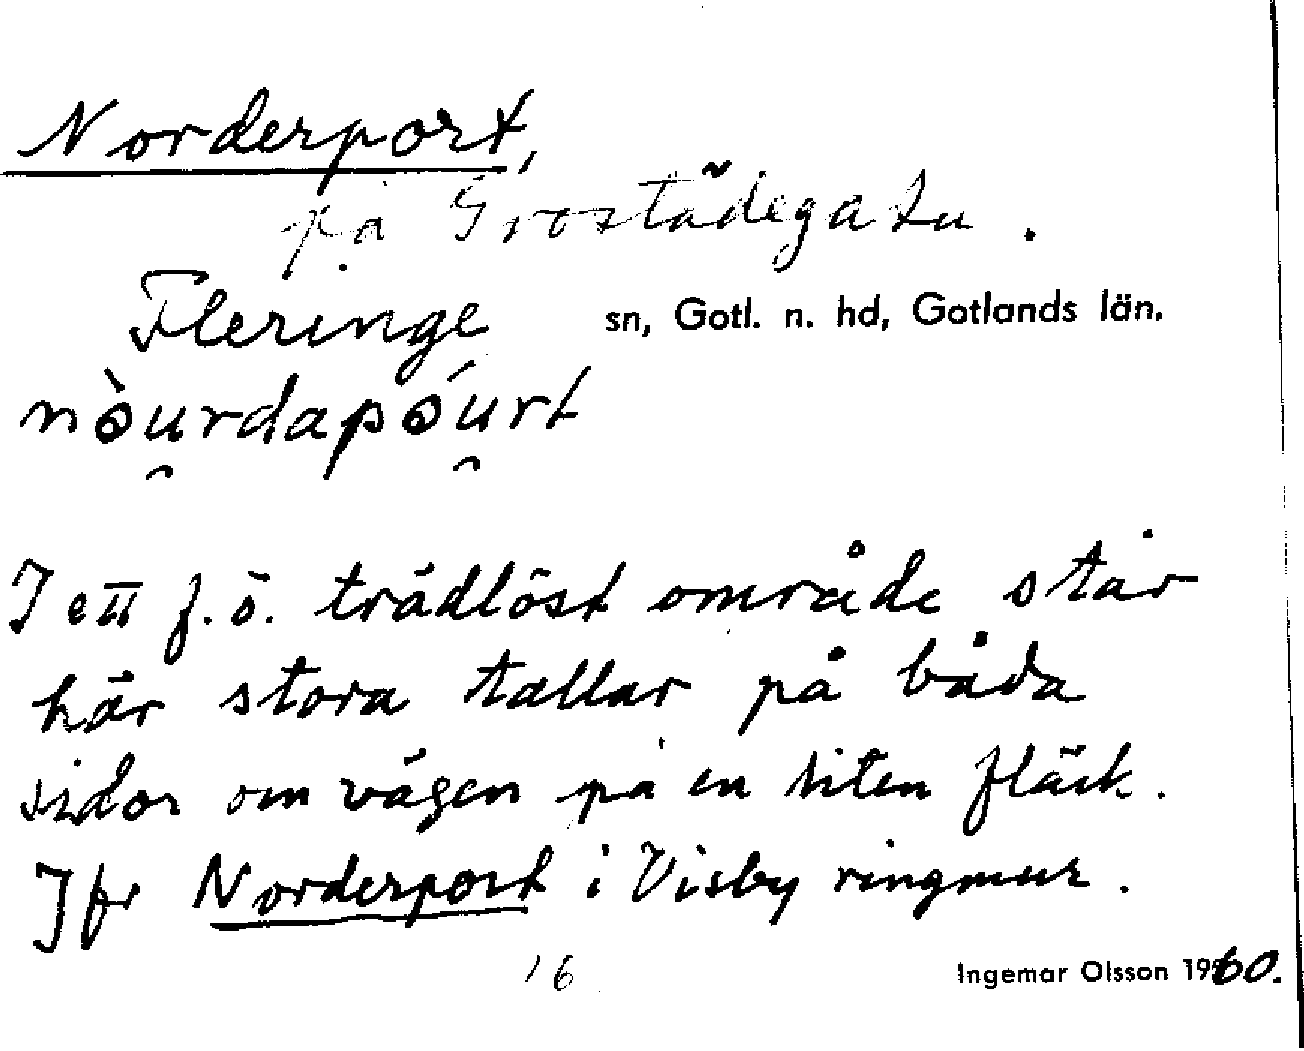 Norderport,
på Grostädegatu.
Fleringe sn, Gotl. n. hd, Gotlands län.
nòu̯rdapóu̯rt
I ett f.ö. trädlöst område står
här stora tallar på båda
sidor om vägen på en liten fläck.
Jfr Norderport i Visby ringmur.
16 Ingemar Olsson 1960.